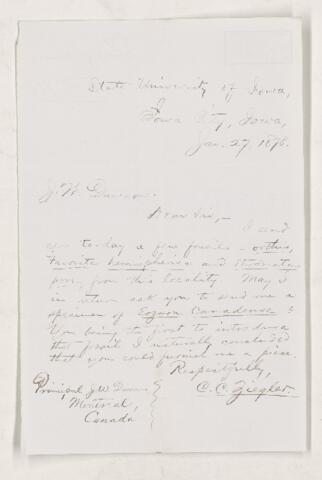 State University of Iowa,
Iowa City, Iowa,
Jan. 27, 1878.
J. W. Dawson.
Dear Sir,—
I send
you today a few fossils—
Favorite hemispherica and
pora, from this locality. May I
in return ask you to send me a
specimen of Eozoon Canadense?
You being the first to introduce
that fossil I naturally concluded
that you could furnish me a piece.
Respectfully,
C. C. Ziegler.
Principal J. W. Dawson
Montreal,
Canada